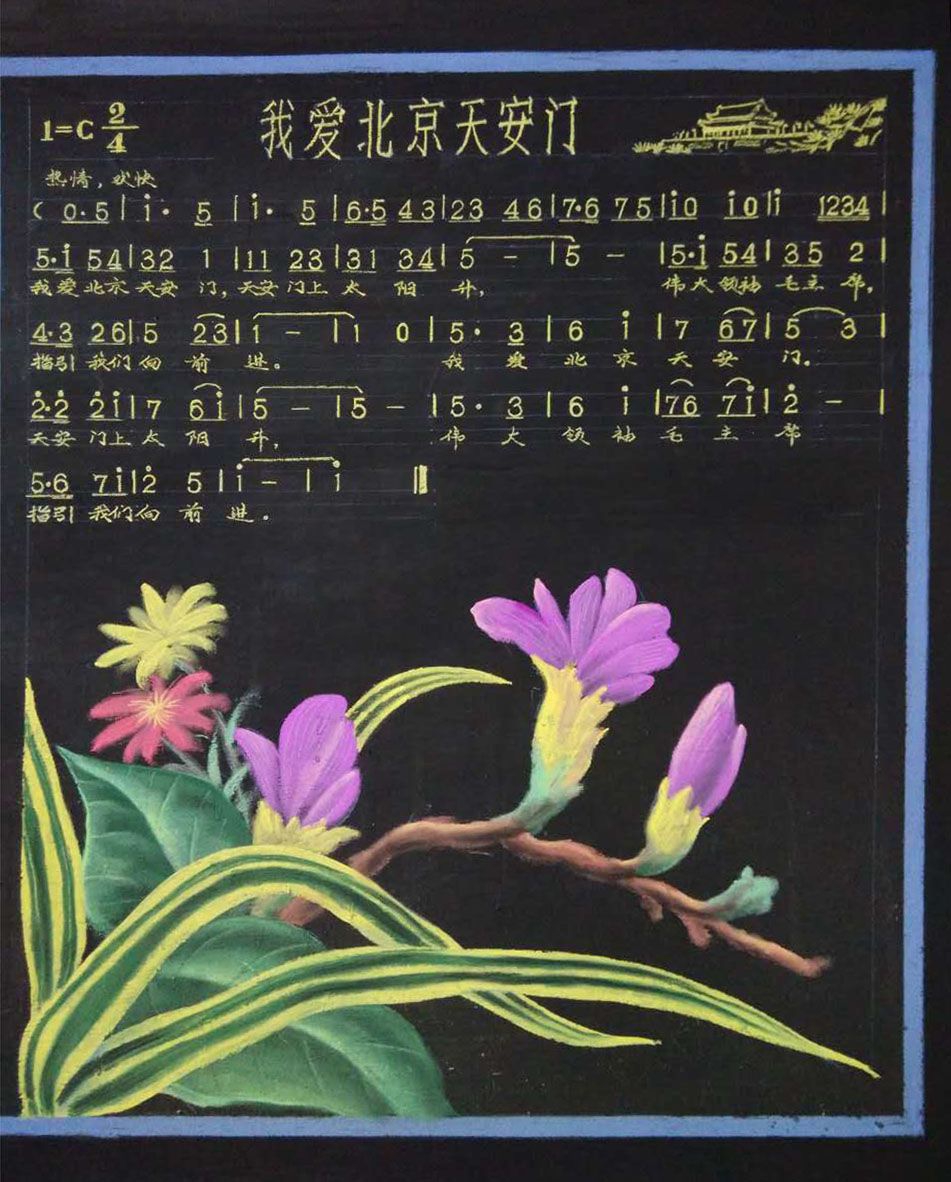 1=C 2/4 我爱北京天安门
热情，欢快
( 0·5 | i· 5 | i· 5 | 6·5 43 | 23 46 | 7·6 75 | i0 i0 | i 1234 |
5·i 54 | 32 1 | 11 23 | 31 34 | 5 - | 5 - | 5·i 54 | 35 2 |
我爱北京天安门，天安门上太阳升， 伟大领袖毛主席，
4·3 26 | 5 23 | 1 - | 1 0 | 5· 3 | 6 i | 7 67 | 5 3 |
指引我们向前进。 我爱北京天安门。
2̇·2̇ 2̇i | 7 6i | 5 - | 5 - | 5· 3 | 6 i | 76 7i | 2̇ - |
天安门上太阳升， 伟大领袖毛主席
5·6 7i | 2̇ 5 | i - | i ‖
指引我们向前进。